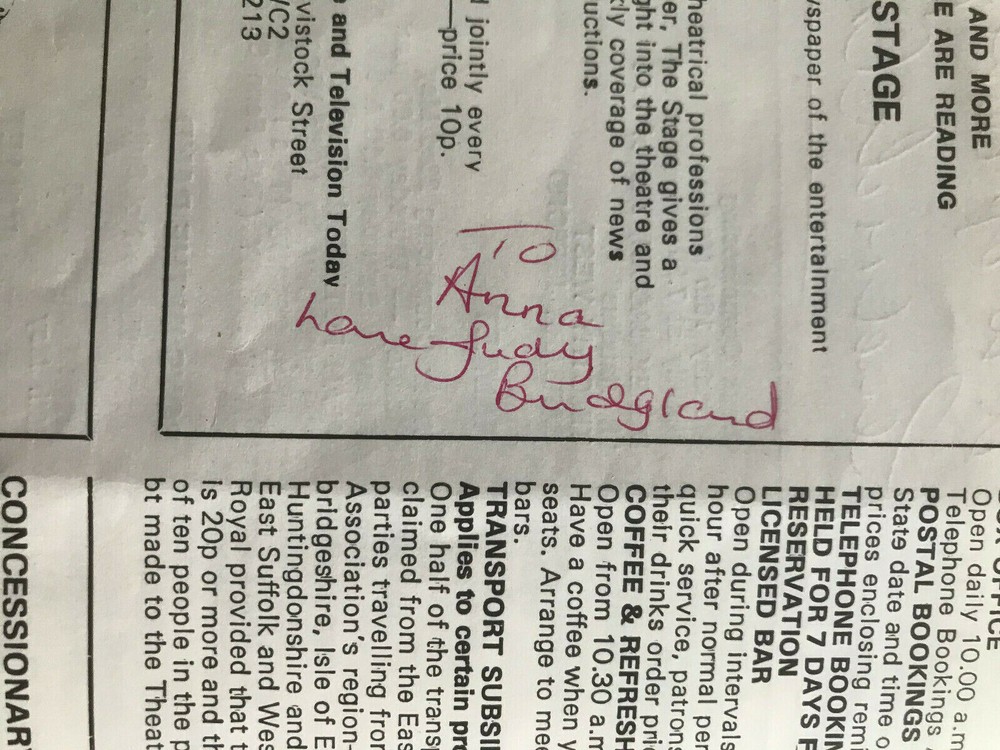 AND MORE
E ARE READING
STAGE
wspaper of the entertainment
heatrical professions
er, The Stage gives a
ght into the theatre and
kly coverage of news
uctions.
d jointly every
—price 10p.
and Television Today
vistock Street
C2
213
To
Anna
love Judy
Bridgland
OFFICE
Open daily 10.00 a.m
Telephone Bookings
POSTAL BOOKINGS
State date and time o
prices enclosing remi
TELEPHONE BOOKIN
HELD FOR 7 DAYS F
RESERVATION
LICENSED BAR
Open during intervals
hour after normal per
quick service, patrons
their drinks order pric
COFFEE & REFRESH
Open from 10.30 a.m
Have a coffee when y
seats. Arrange to mee
bars.
TRANSPORT SUBSI
Applies to certain pre
One half of the transp
claimed from the Eas
parties travelling fror
Association's region-
bridgeshire, Isle of E
Huntingdonshire and
East Suffolk and Wes
Royal provided that t
is 20p or more and th
of ten people in the p
bt made to the Theat
CONCESSIONARY